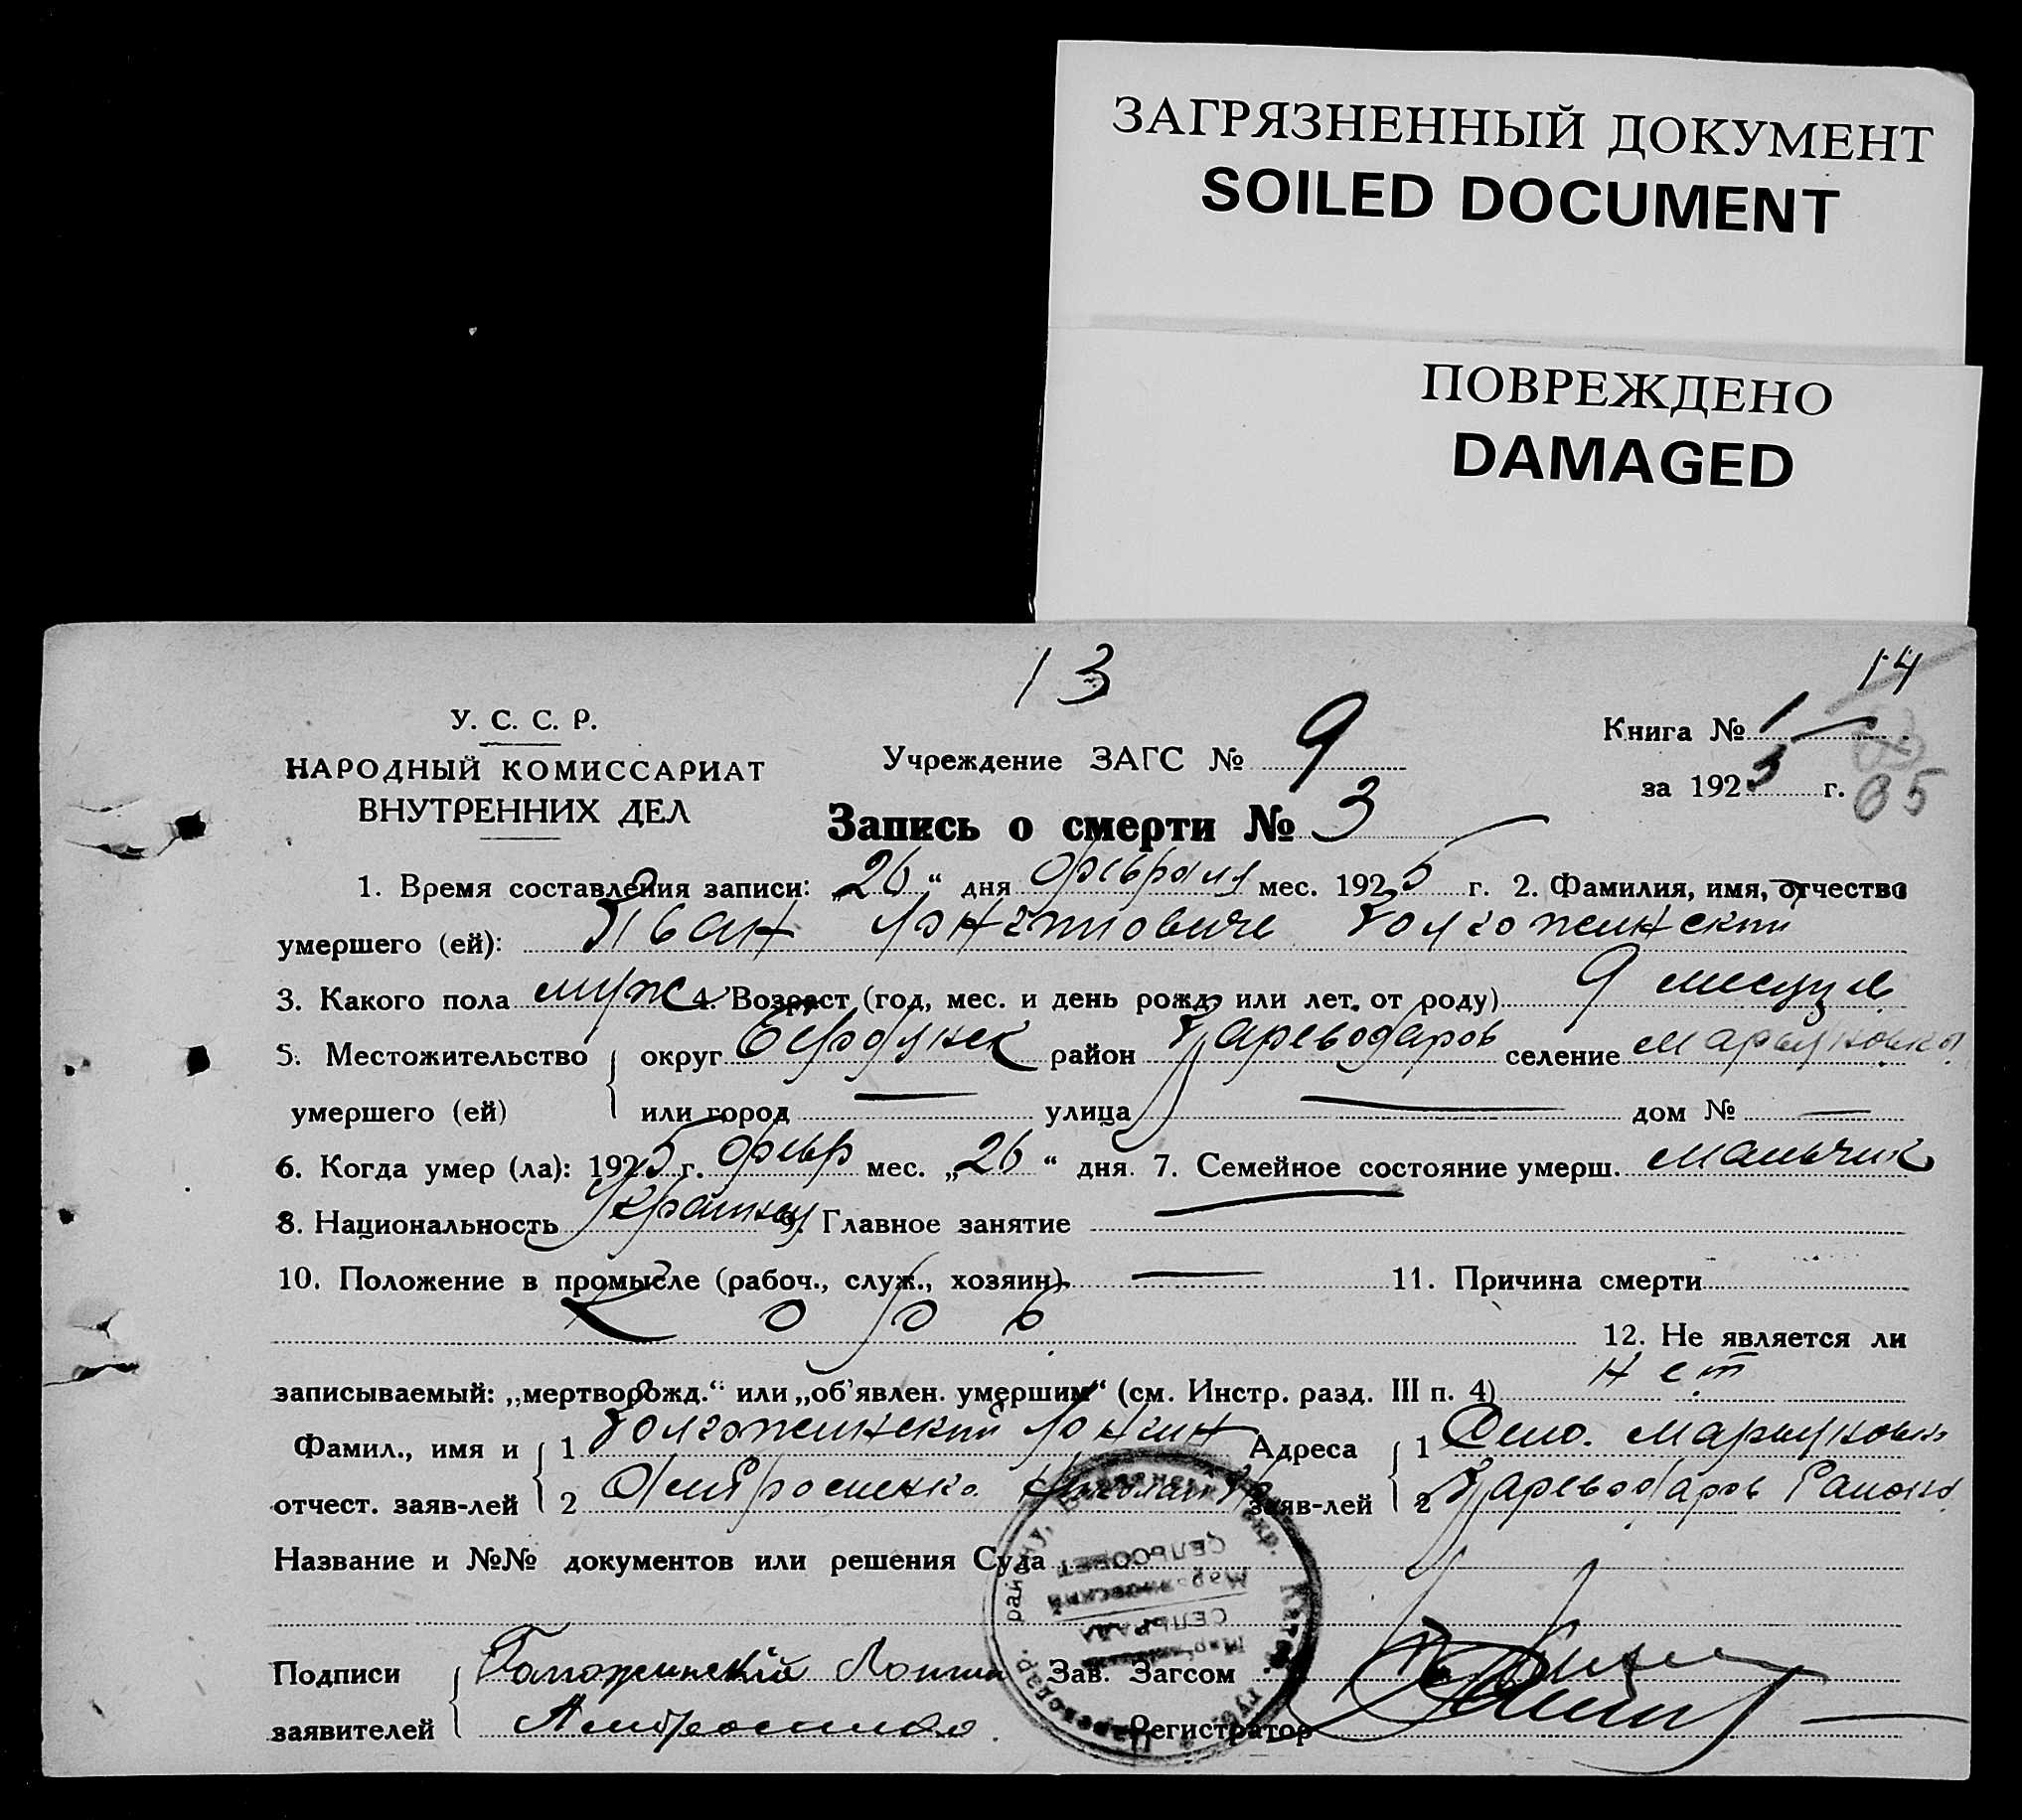 ЗАГРЯЗНЕННЫЙ ДОКУМЕНТ
SOILED DOCUMENT
ПОВРЕЖДЕНО
DAMAGED
13
14
У. С. С. Р.
НАРОДНЫЙ КОМИССАРИАТ
ВНУТРЕННИХ ДЕЛ
Учреждение ЗАГС № 9
Книга № 1
за 1925 г.
65
Запись о смерти № 3
1. Время составления записи: „26“ дня февраля мес. 1925 г. 2. Фамилия, имя, отчество
умершего (ей): Иван Лонгинович
3. Какого пола муж 4. Возраст (год, мес. и день рожд. или лет. от роду) 9 месяцев
5. Местожительство округ Бердянск район Цареводаров селение Марьяновка
умершего (ей) или город — улица — дом № —
6. Когда умер (ла): 1925 г. февр мес. „26“ дня. 7. Семейное состояние умерш. мальчик
8. Национальность 9. Главное занятие —
10. Положение в промысле (рабоч., служ., хозяин) — 11. Причина смерти
Корь 12. Не является ли
записываемый: „мертворожд.“ или „об’явлен. умершим“ (см. Инстр. разд. III п. 4) нет
Фамил., имя и 1 Лонгин Адреса 1 Село. Марьяновка
отчест. заяв-лей 2 Амбросенко Николай заяв-лей 2 Цареводаров Района
Название и №№ документов или решения Суда
СЕЛЬСОВЕТ
СЕЛЬРАДА
Подписи Зав. Загсом
заявителей Амбросенко Регистратор